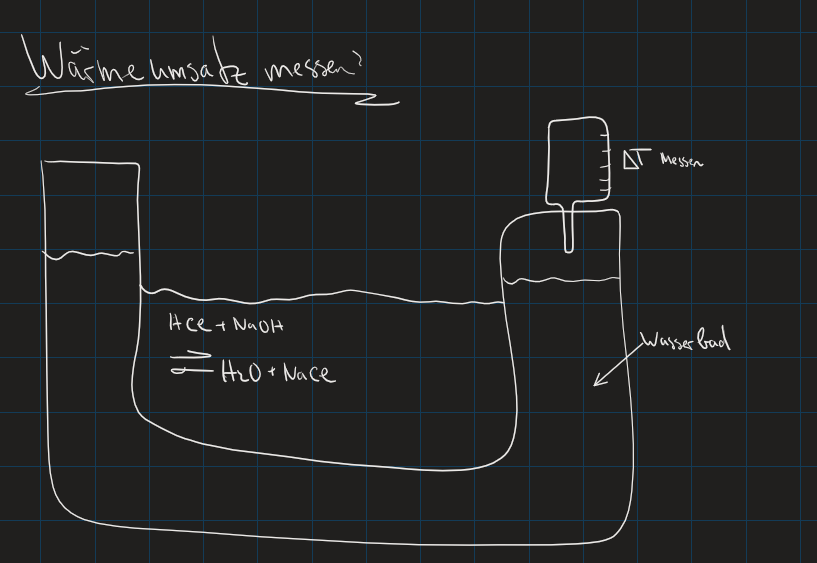 Wärmeumsatz messen?
ΔT Messen
HCl + NaOH
⇌ H2O + NaCl
Wasserbad